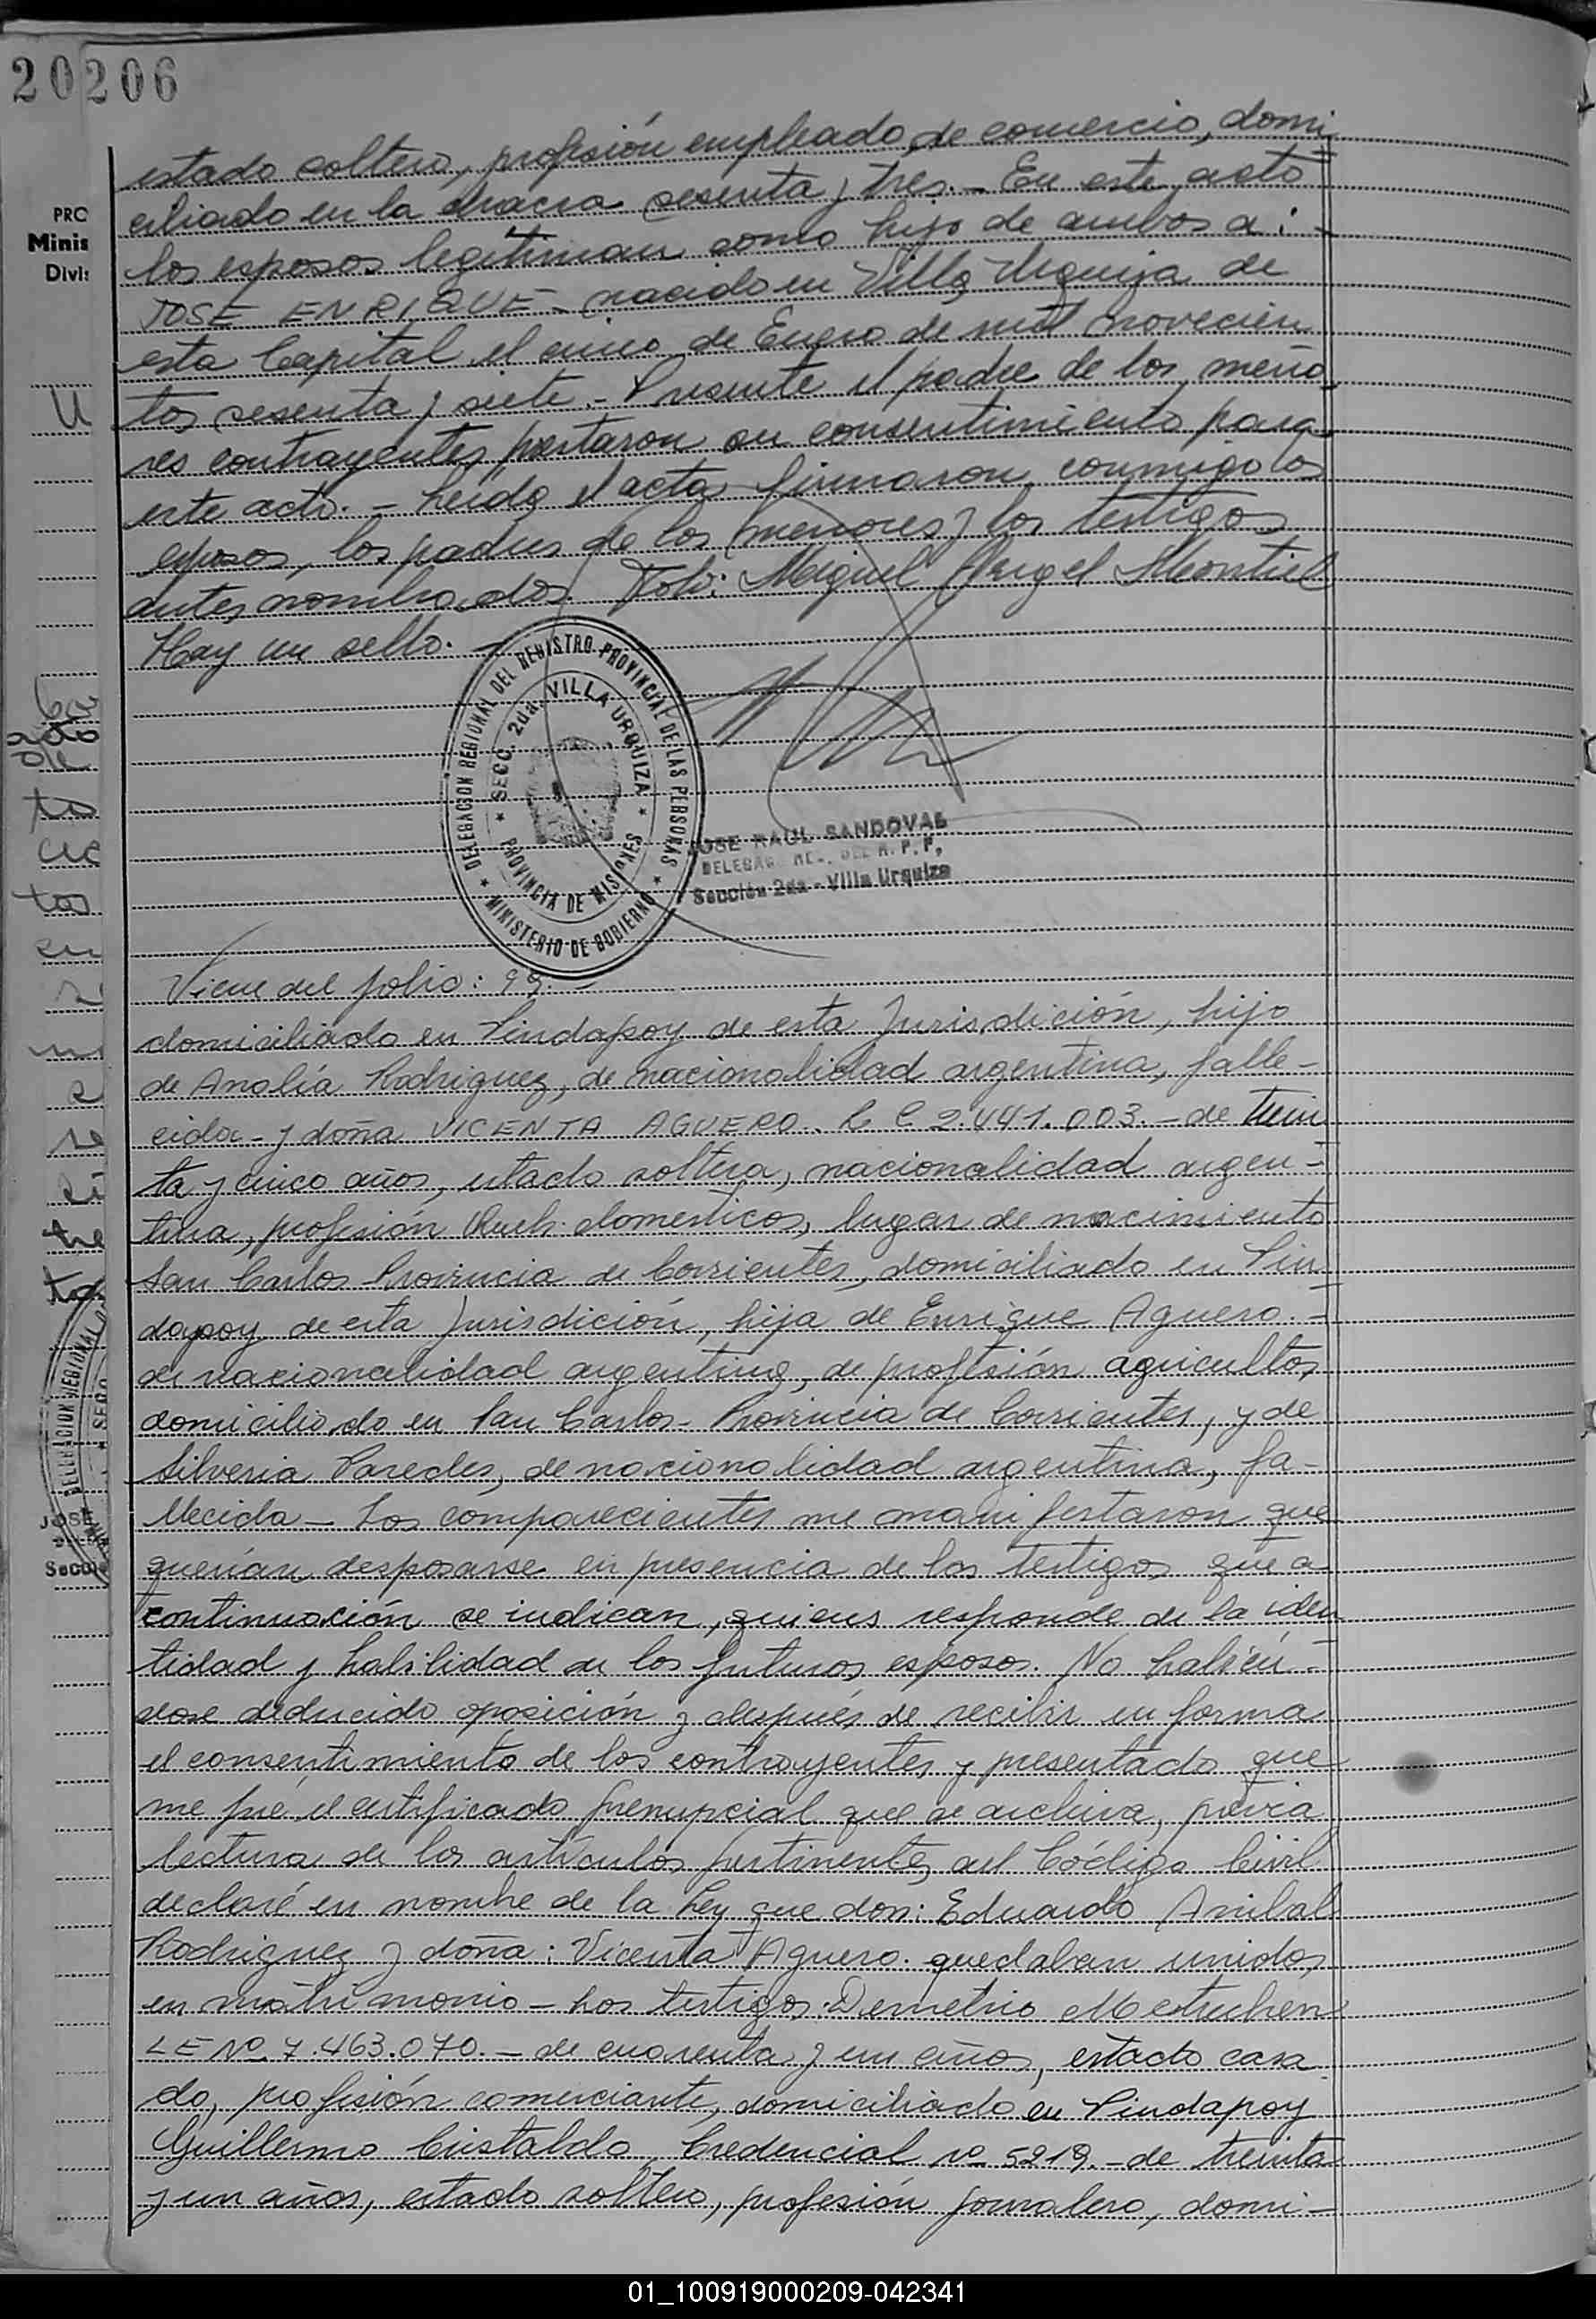 20206
estado soltero, profesión empleado de comercio, domi
ciliado en la chacra sesenta y tres. - En este acto
los esposos legitiman como hijo de ambos a: -
JOSE ENRIQUE - nacido en Villa Urquiza de
esta Capital el cinco de Enero de mil novecien
tos sesenta y siete. - Presente el padre de los meno
res contrayentes prestaron su consentimiento para
este acto. - Leida el acta firmaron conmigo los
esposos, los padres de los menores y los testigos
antes nombrados. Fdo: Miguel Angel Montiel
Hay un sello. -
DELEGACION REGIONAL DEL REGISTRO PROVINCIAL DE LAS PERSONAS
SECC. 2da. VILLA URQUIZA
PROVINCIA DE MISIONES
MINISTERIO DE GOBIERNO
JOSE RAUL SANDOVAL
DELEGAD REG. DEL R. P. P.
Sección 2da - Villa Urquiza
Viene del folio: 99. -
domiciliado en Pindapoy de esta Jurisdición, hijo
de Analía Rodriguez, de nacionalidad argentina, falle-
cida - y doña VICENTA AGUERO. L C 2.441.003. - de trein
ta y cinco años, estado soltera, nacionalidad argen-
tina, profesión Queh. domesticos, lugar de nacimiento
San Carlos Provincia de Corrientes, domiciliado en Pin
dapoy de esta Jurisdición, hija de Enrique Aguero. -
de nacionalidad argentina, de profesión agricultor,
domiciliado en San Carlos - Provincia de Corrientes, y de
Silveria Paredes, de nacionalidad argentina, fa-
llecida - Los comparecientes me manifestaron que
querían desposarse en presencia de los testigos que a
continuación se indican, quiens responde de la iden
tidad y habilidad de los futuros esposos. No habién-
dose deducido oposición y después de recibir en forma
el consentimiento de los contrayentes y presentado que
me fue el certificado prenupcial que se archiva, previa
lectura de los artículos pertinentes del Código Civil
declaré en nombre de la Ley que don: Eduardo Anibal
Rodriguez y doña: Vicenta Aguero. quedaban unidos
en matrimonio - Los testigos: Demetrio Mestruhen
LE Nº 7.463.070. - de cuarenta y un años, estado casa
do, profesión comerciante, domiciliado en Pindapoy
Guillermo Cristaldo, Credencial nº 5219. - de treinta
y un años, estado soltero, profesión jornalero, domi-
01_100919000209-042341